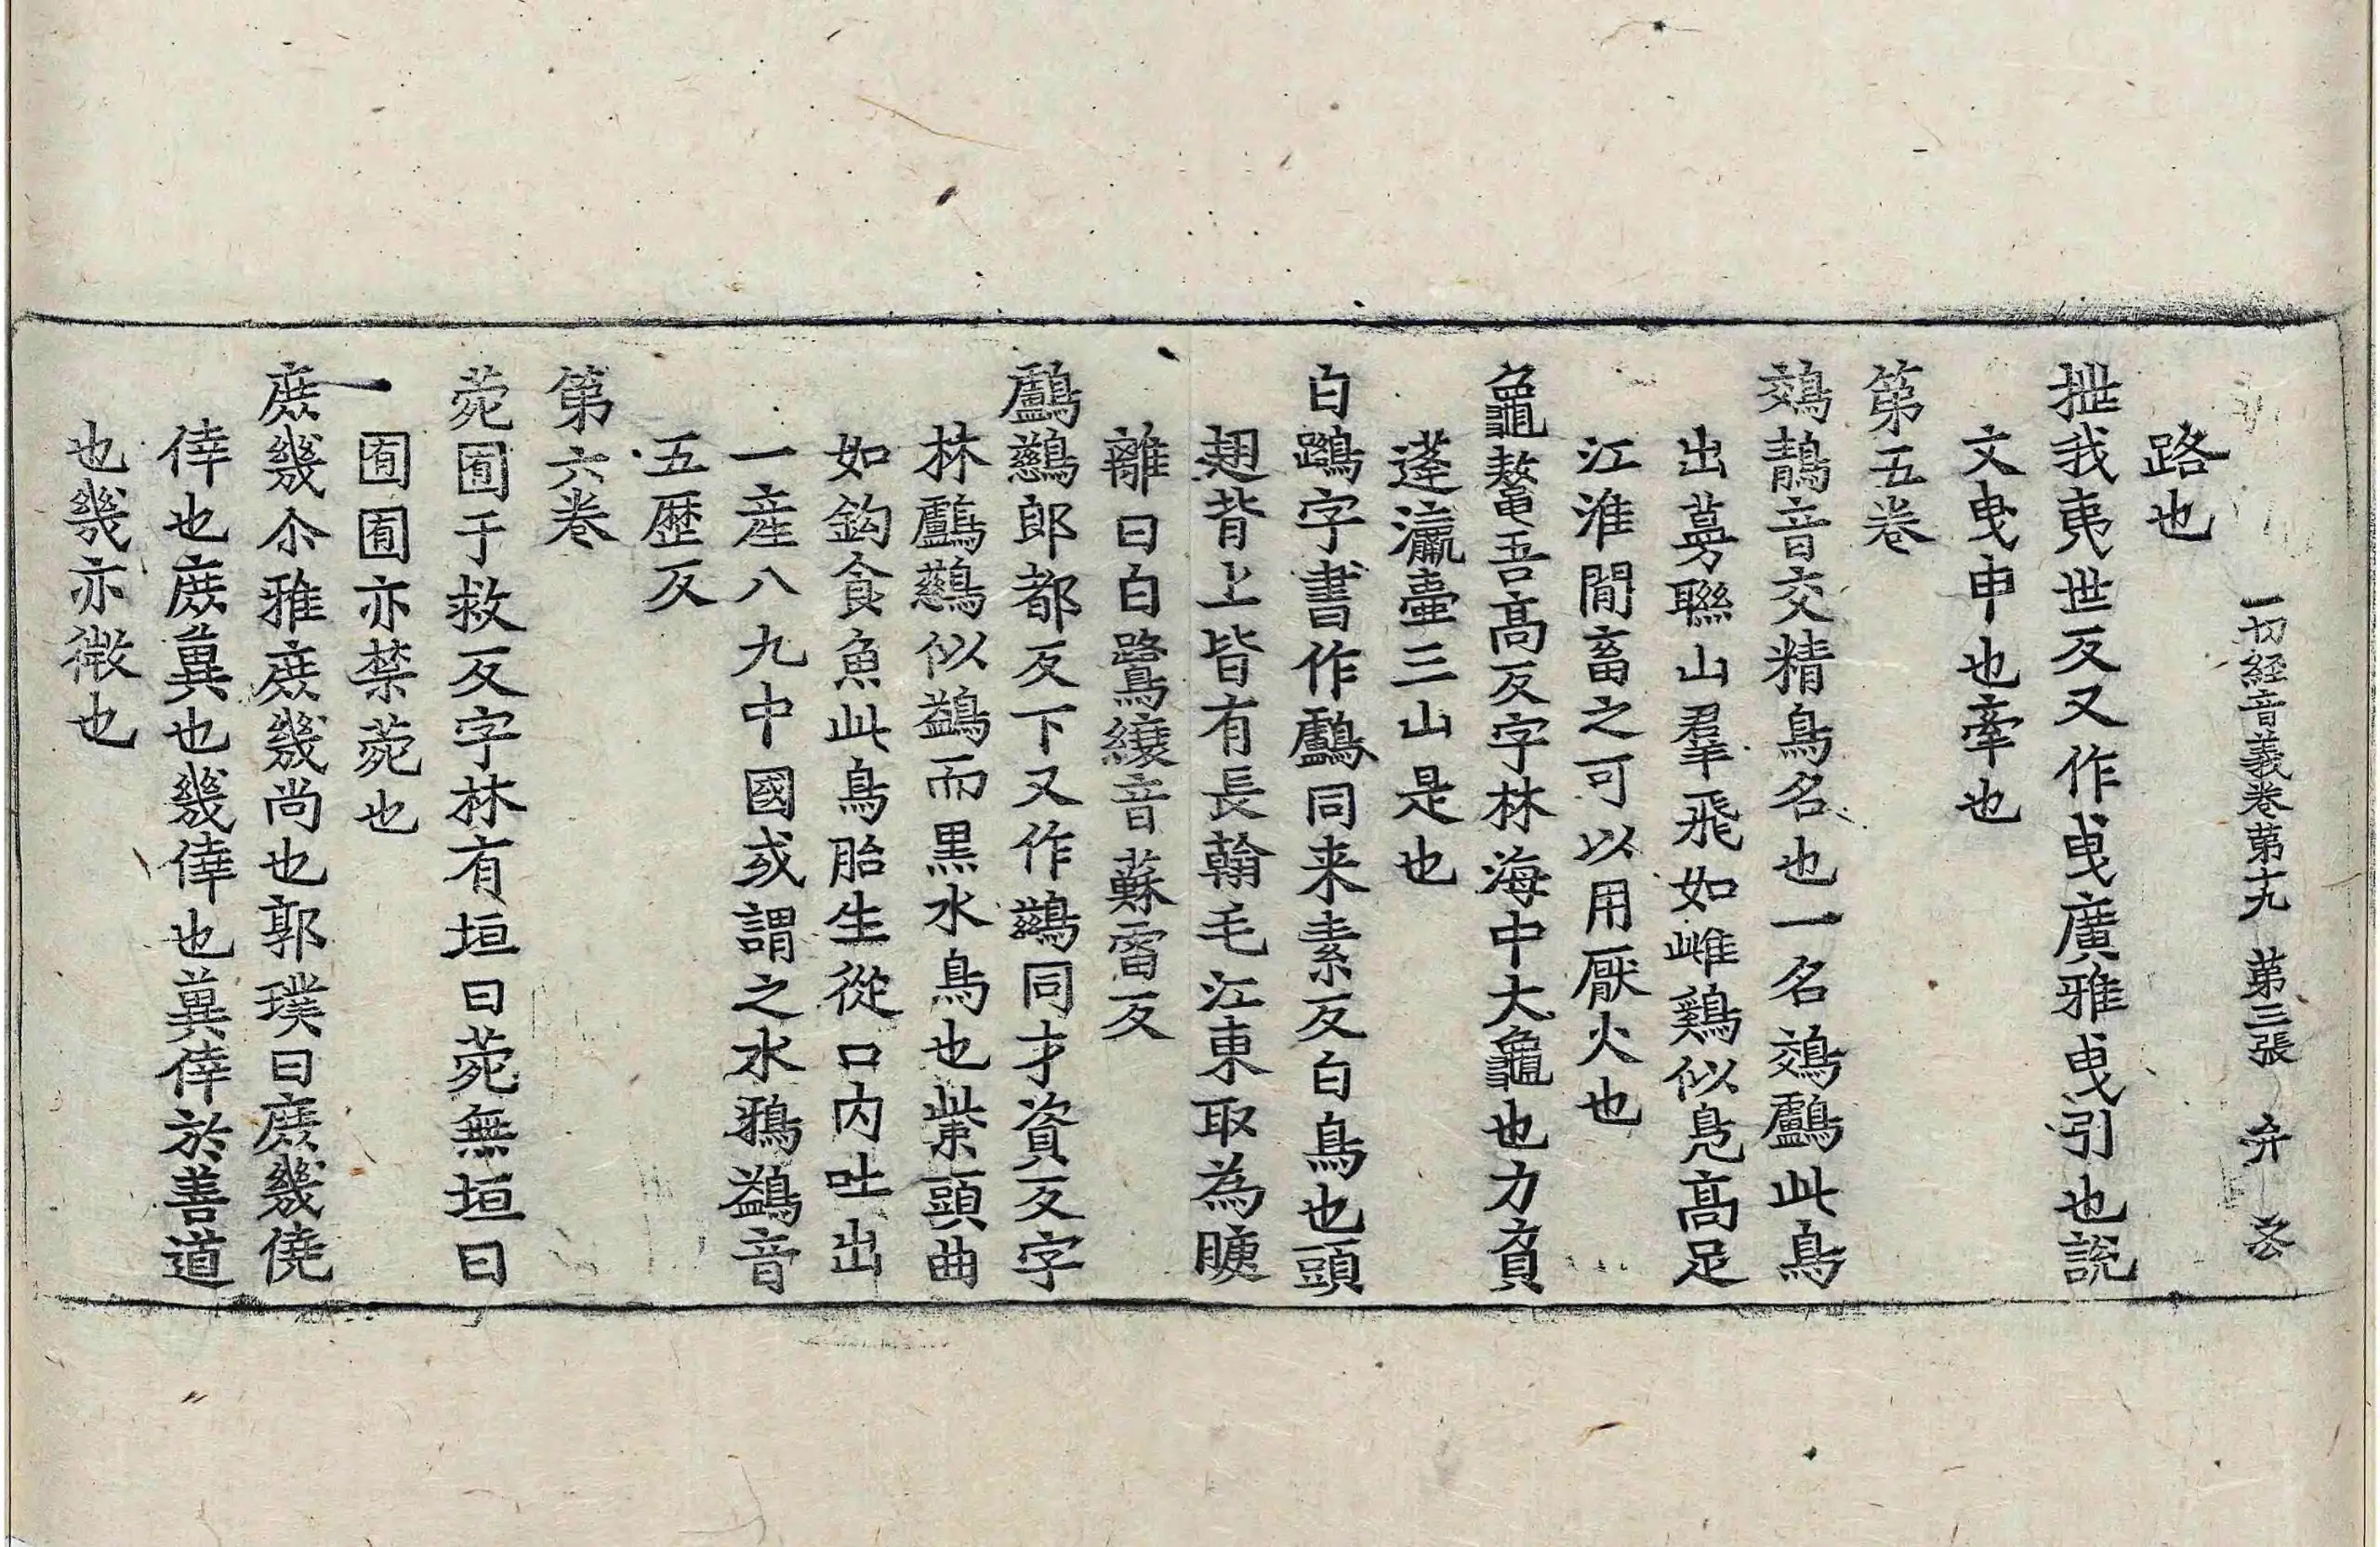 一切経音義卷第十九 第三張 弁
路也
抴我夷世反又作曳廣雅曳引也說
文曳申也牽也
第五卷
鵁鶄音交精鳥名也一名鵁鸕此鳥
出蔓聯山羣飛如雌鷄似鳧高足
江淮間畜之可以用厭火也
龜鼇吾高反字林海中大龜也力負
蓬瀛臺三山是也
白鷺字書作鸕同来素反白鳥也頭
翅背上皆有長翰毛江東取為睫
離曰白鷺縗音蘇雷反
鸕鷀郎都反下又作鷀同才資反字
林鸕鷀似鷁而黒水鳥也紫頭曲
如鈎食魚此鳥胎生從口内吐出
一産八九中國或謂之水鴉鷁音
五歷反
第六卷
菀囿于救反字林有垣曰菀無垣曰
囿囿亦禁菀也
庶幾尒雅庶幾尚也郭璞曰庶幾僥
倖也庶兾也幾倖也兾倖於善道
也幾亦微也